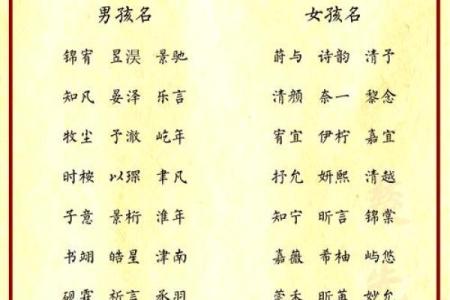 男孩名 女孩名
锦宥 昱淏 景驰 蔚与 诗韵 清予
知凡 晏泽 乐言 清颜 奈一 黎念
牧尘 予澈 屹年 宥宜 伊柠 嘉宜
时桉 以琛 聿凡 抒允 妍熙 清越
子意 景桁 淮年 知宁 昕言 锦棠
书翊 皓星 津南 嘉薇 希柚 屿悠
砚霖 析言 丞羽